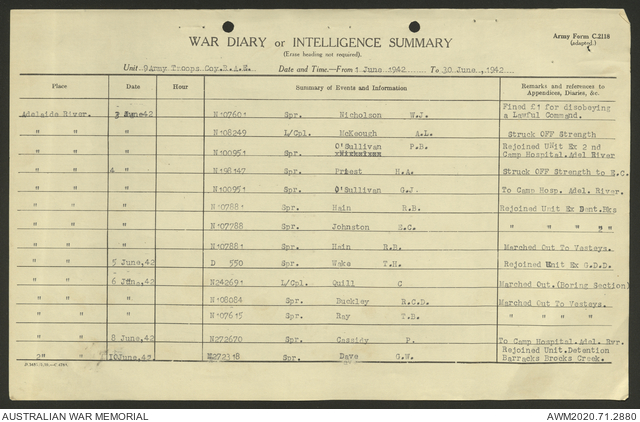 Army Form C.2118
(adapted.)
WAR DIARY or INTELLIGENCE SUMMARY
(Erase heading not required).
Unit 9 Army Troops Coy.R.A.E. Date and Time.—From 1 June 1942 To 30 June, 1942
Place Date Hour Summary of Events and Information Remarks and references to Appendices, Diaries, &c.
Adelaide River. 3 June 42 N107601 Spr. Nicholson W.J. Fined £1 for disobeying a Lawful Command.
" " " N108249 L/Cpl. McKeough A.L. Struck OFF Strength
" " " N100951 Spr. O'Sullivan P.B. Rejoined Unit Ex 2nd Camp Hospital. Adel River
" " 4 " N198147 Spr. Priest H.A. Struck OFF Strength to E.C.
" " " N100951 Spr. O'Sullivan G.J. To Camp Hosp. Adel. River.
" " " N107881 Spr. Hain R.B. Rejoined Unit Ex Dent.Hks
" " " N107788 Spr. Johnston E.C. " " " " "
" " " N107881 Spr. Hain R.B. Marched Out To Vesteys.
" " 5 June,42 D 550 Spr. Wake T.H. Rejoined Unit Ex G.D.D.
" " 6 June,42 N242691 L/Cpl. Quill C Marched Out.(Boring Section)
" " " N108084 Spr. Buckley R.C.D. Marched Out To Vesteys.
" " " N107615 Spr. Ray T.B. " " " "
" " 8 June,42 N272670 Spr. Cassidy P. To Camp Hospital. Adel. Rvr.
2" " 10June,42. N272318 Spr. Dave G.W. Rejoined Unit.Detention Barracks Brocks Creek.
AUSTRALIAN WAR MEMORIAL
AWM2020.71.2880